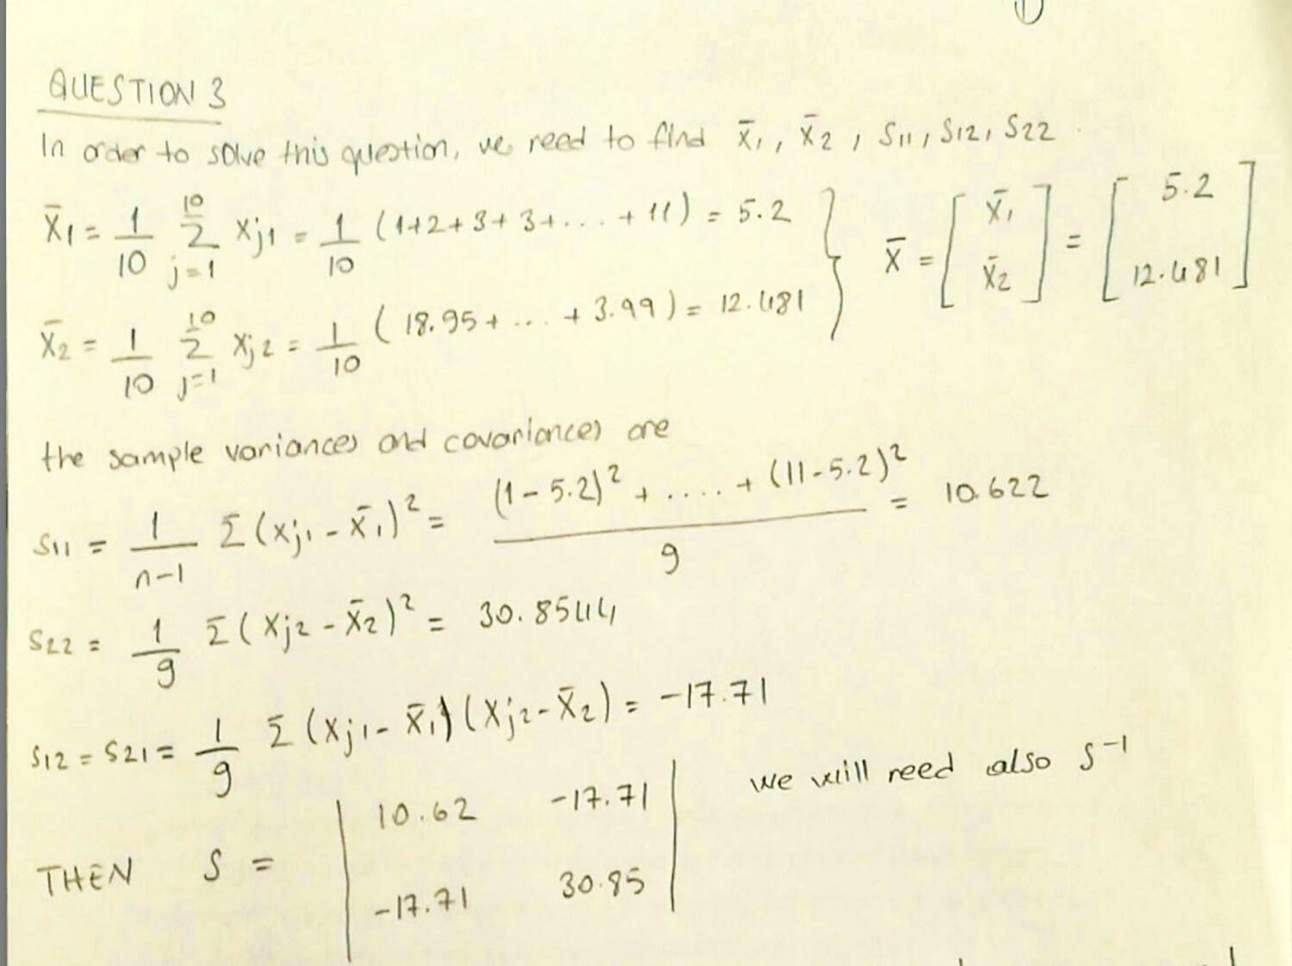 QUESTION 3
In order to solve this question, we need to find x̄₁, x̄₂, S₁₁, S₁₂, S₂₂
x̄₁ = 1/10 Σ_{j=1}^{10} xj₁ = 1/10 (1+2+3+3+....+11) = 5.2 } x̄ = [x̄₁ x̄₂] = [5.2 12.481]
x̄₂ = 1/10 Σ_{j=1}^{10} xj₂ = 1/10 (18.95+...+3.99) = 12.481
the sample variances and covariances are
S₁₁ = 1/(n-1) Σ(xj₁ - x̄₁)² = ((1-5.2)² + .... + (11-5.2)²)/9 = 10.622
S₂₂ = 1/9 Σ(xj₂ - x̄₂)² = 30.8544
S₁₂ = S₂₁ = 1/9 Σ(xj₁ - x̄₁)(xj₂ - x̄₂) = -17.71
THEN S = | 10.62 -17.71 |
| -17.71 30.85 |
we will need also S⁻¹